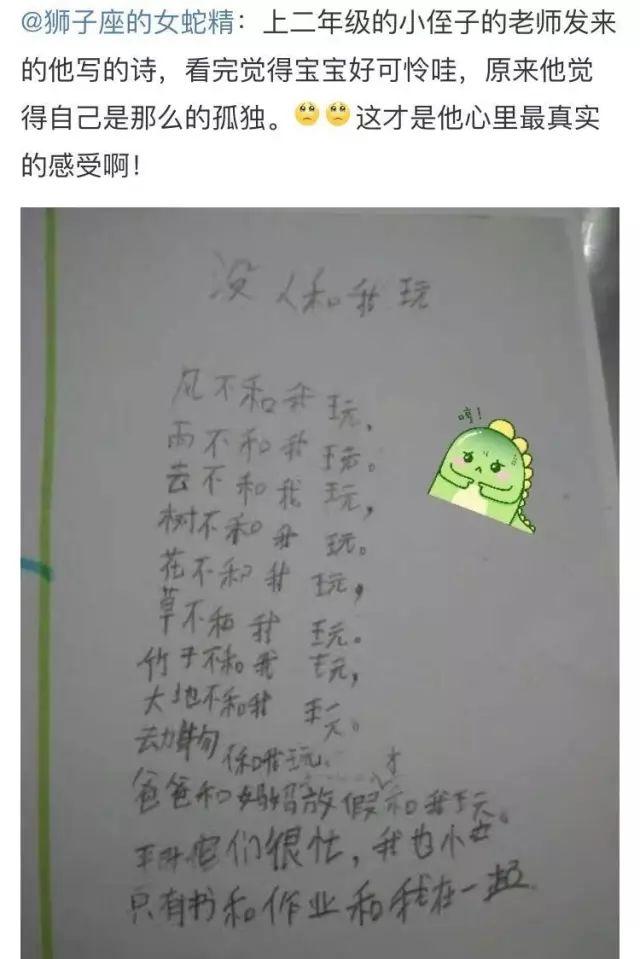 @狮子座的女蛇精：上二年级的小侄子的老师发来
的他写的诗，看完觉得宝宝好可怜哇，原来他觉
得自己是那么的孤独。🥺🥺这才是他心里最真实
的感受啊！
没人和我玩
风不和我玩，
雨不和我玩。
云不和我玩，
树不和我玩。
花不和我玩，
草不和我玩。
竹子不和我玩，
大地不和我玩。
动物不和我玩，
爸爸和妈妈放假才和我玩。
平时他们很忙，我也小
只有书和作业和我在一起
哼！